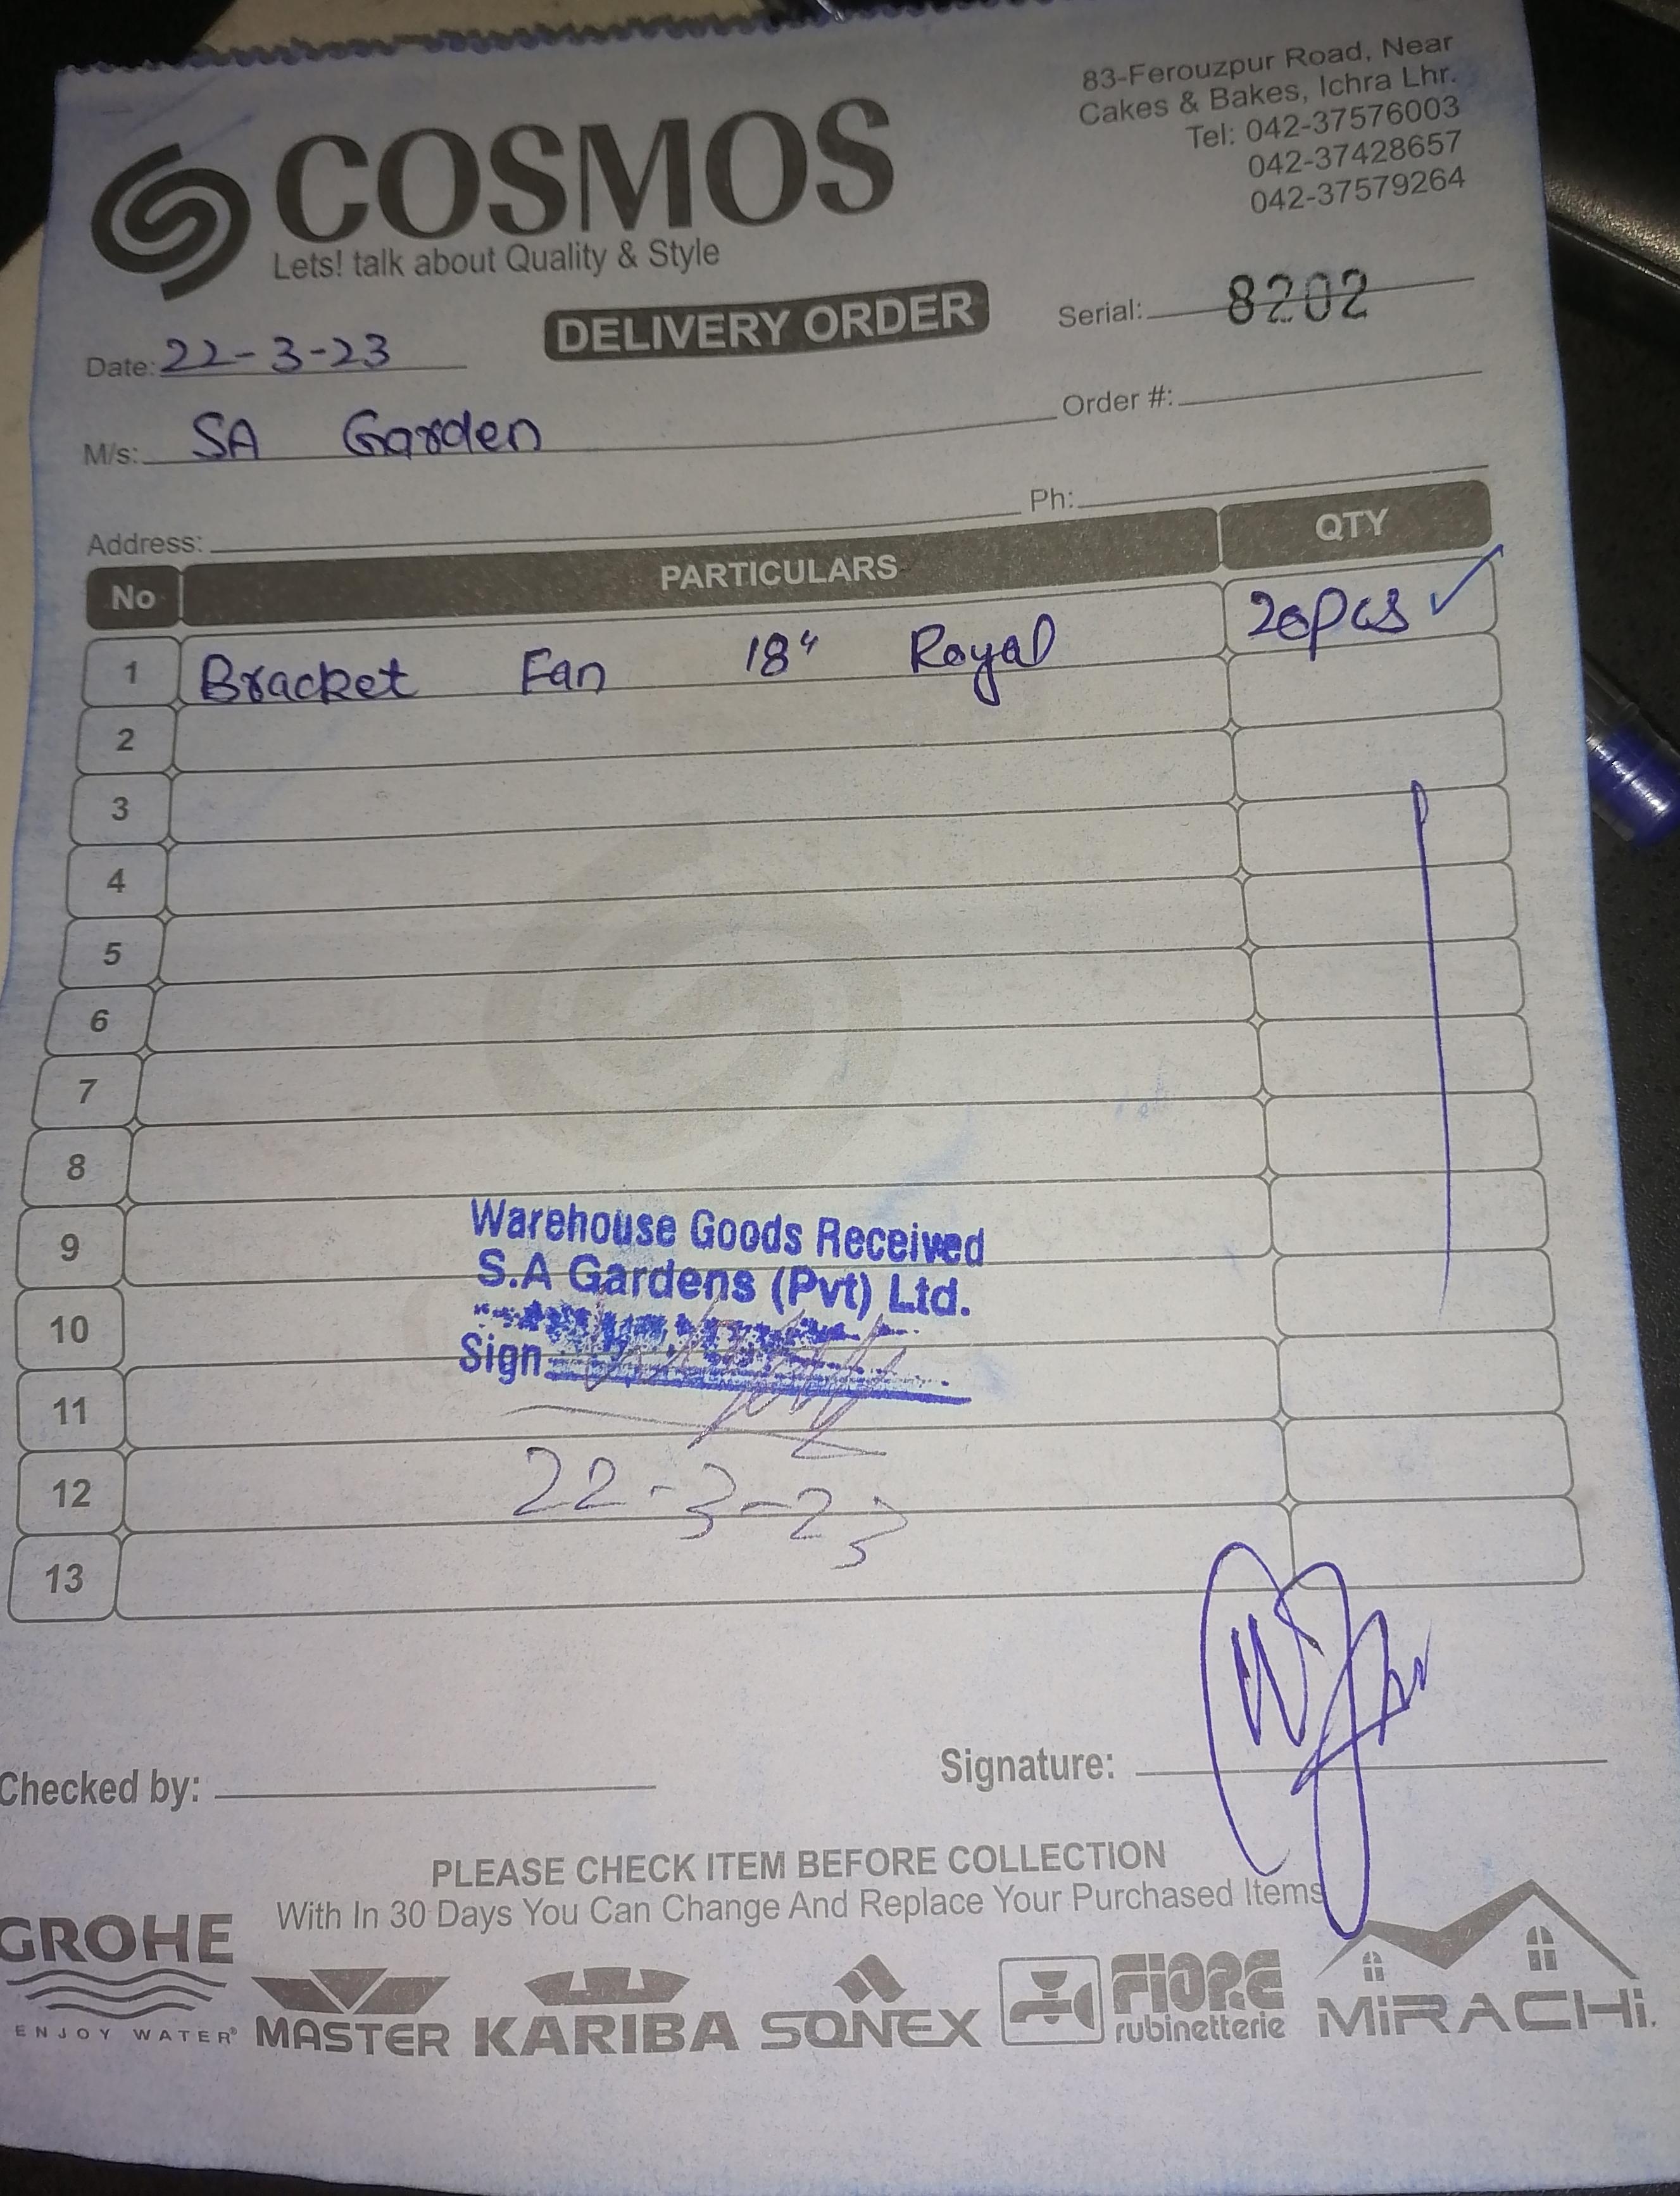 COSMOS
Lets! talk about Quality & Style
83-Ferouzpur Road, Near
Cakes & Bakes, Ichra Lhr.
Tel: 042-37576003
042-37428657
042-37579264
DELIVERY ORDER
Serial: 8202
Date: 22-3-23
Order #:
M/s: SA Garden
Ph:
Address:
No PARTICULARS QTY
1 Bracket Fan 18" Royal 20pcs ✓
2
3
4
5
6
7
8
9
10
11
12
13
Warehouse Goods Received
S.A Gardens (Pvt) Ltd.
Sign
22-3-23
Checked by:
Signature:
PLEASE CHECK ITEM BEFORE COLLECTION
With In 30 Days You Can Change And Replace Your Purchased Items
GROHE
ENJOY WATER®
MASTER
KARIBA
SONEX
FiORE
rubinetterie
MiRACHi.